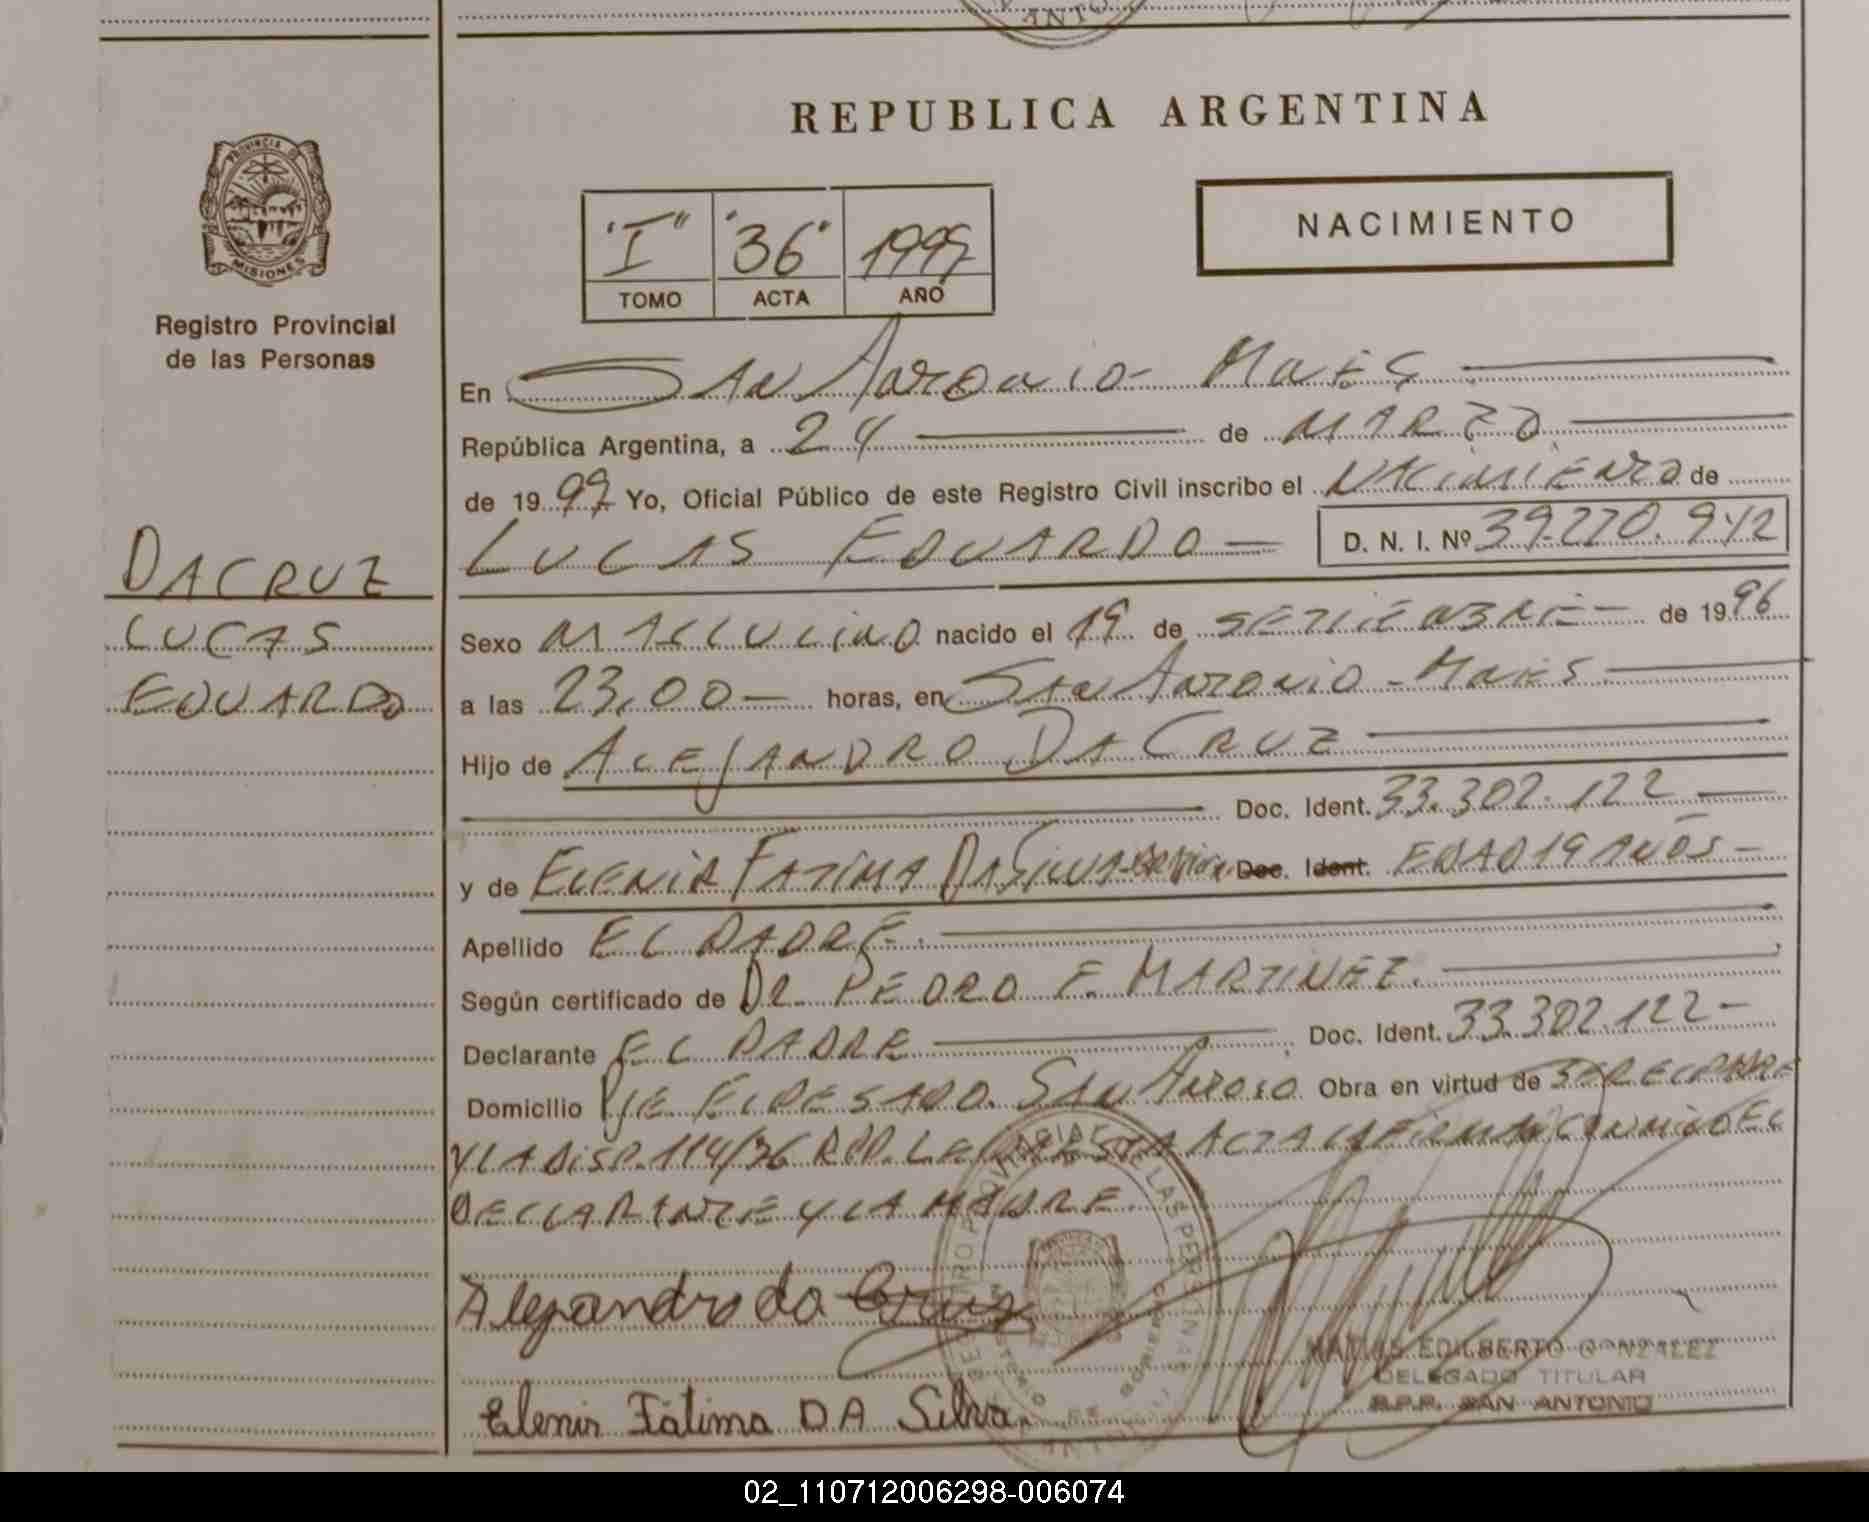 REPUBLICA ARGENTINA
PROVINCIA DE
MISIONES
Registro Provincial
de las Personas
"I" "36" 1997
TOMO ACTA AÑO
NACIMIENTO
En San Antonio Mnes
República Argentina, a 24 de MARZO
de 1997 Yo, Oficial Público de este Registro Civil inscribo el NACIMIENTO de
LUCAS EDUARDO D. N. I. Nº 39.270.942
DACRUZ
LUCAS
EDUARDO
Sexo MASCULINO nacido el 19 de SETIEMBRE de 1996
a las 23,00 horas, en San Antonio - Mnes
Hijo de ALEJANDRO DA CRUZ
Doc. Ident. 33.302.122
y de ELENIR FATIMA DA SILVA Doc. Ident. EDAD 19 AÑOS
Apellido EL PADRE.
Según certificado de DR. PEDRO F. MARTINEZ.
Declarante EL PADRE Doc. Ident. 33.302.122
Domicilio PJE ELDESADO. San Antonio Obra en virtud de
Y LA DISP. 114/96 RPP. ESTA ACTA LA FIRMAN CONMIGO EL
DECLARANTE Y LA MADRE.
Alejandro da Cruz
Elenir Fátima DA Silva
MATIAS EDILBERTO GONZALEZ
DELEGADO TITULAR
R.P.P. SAN ANTONIO
02_110712006298-006074